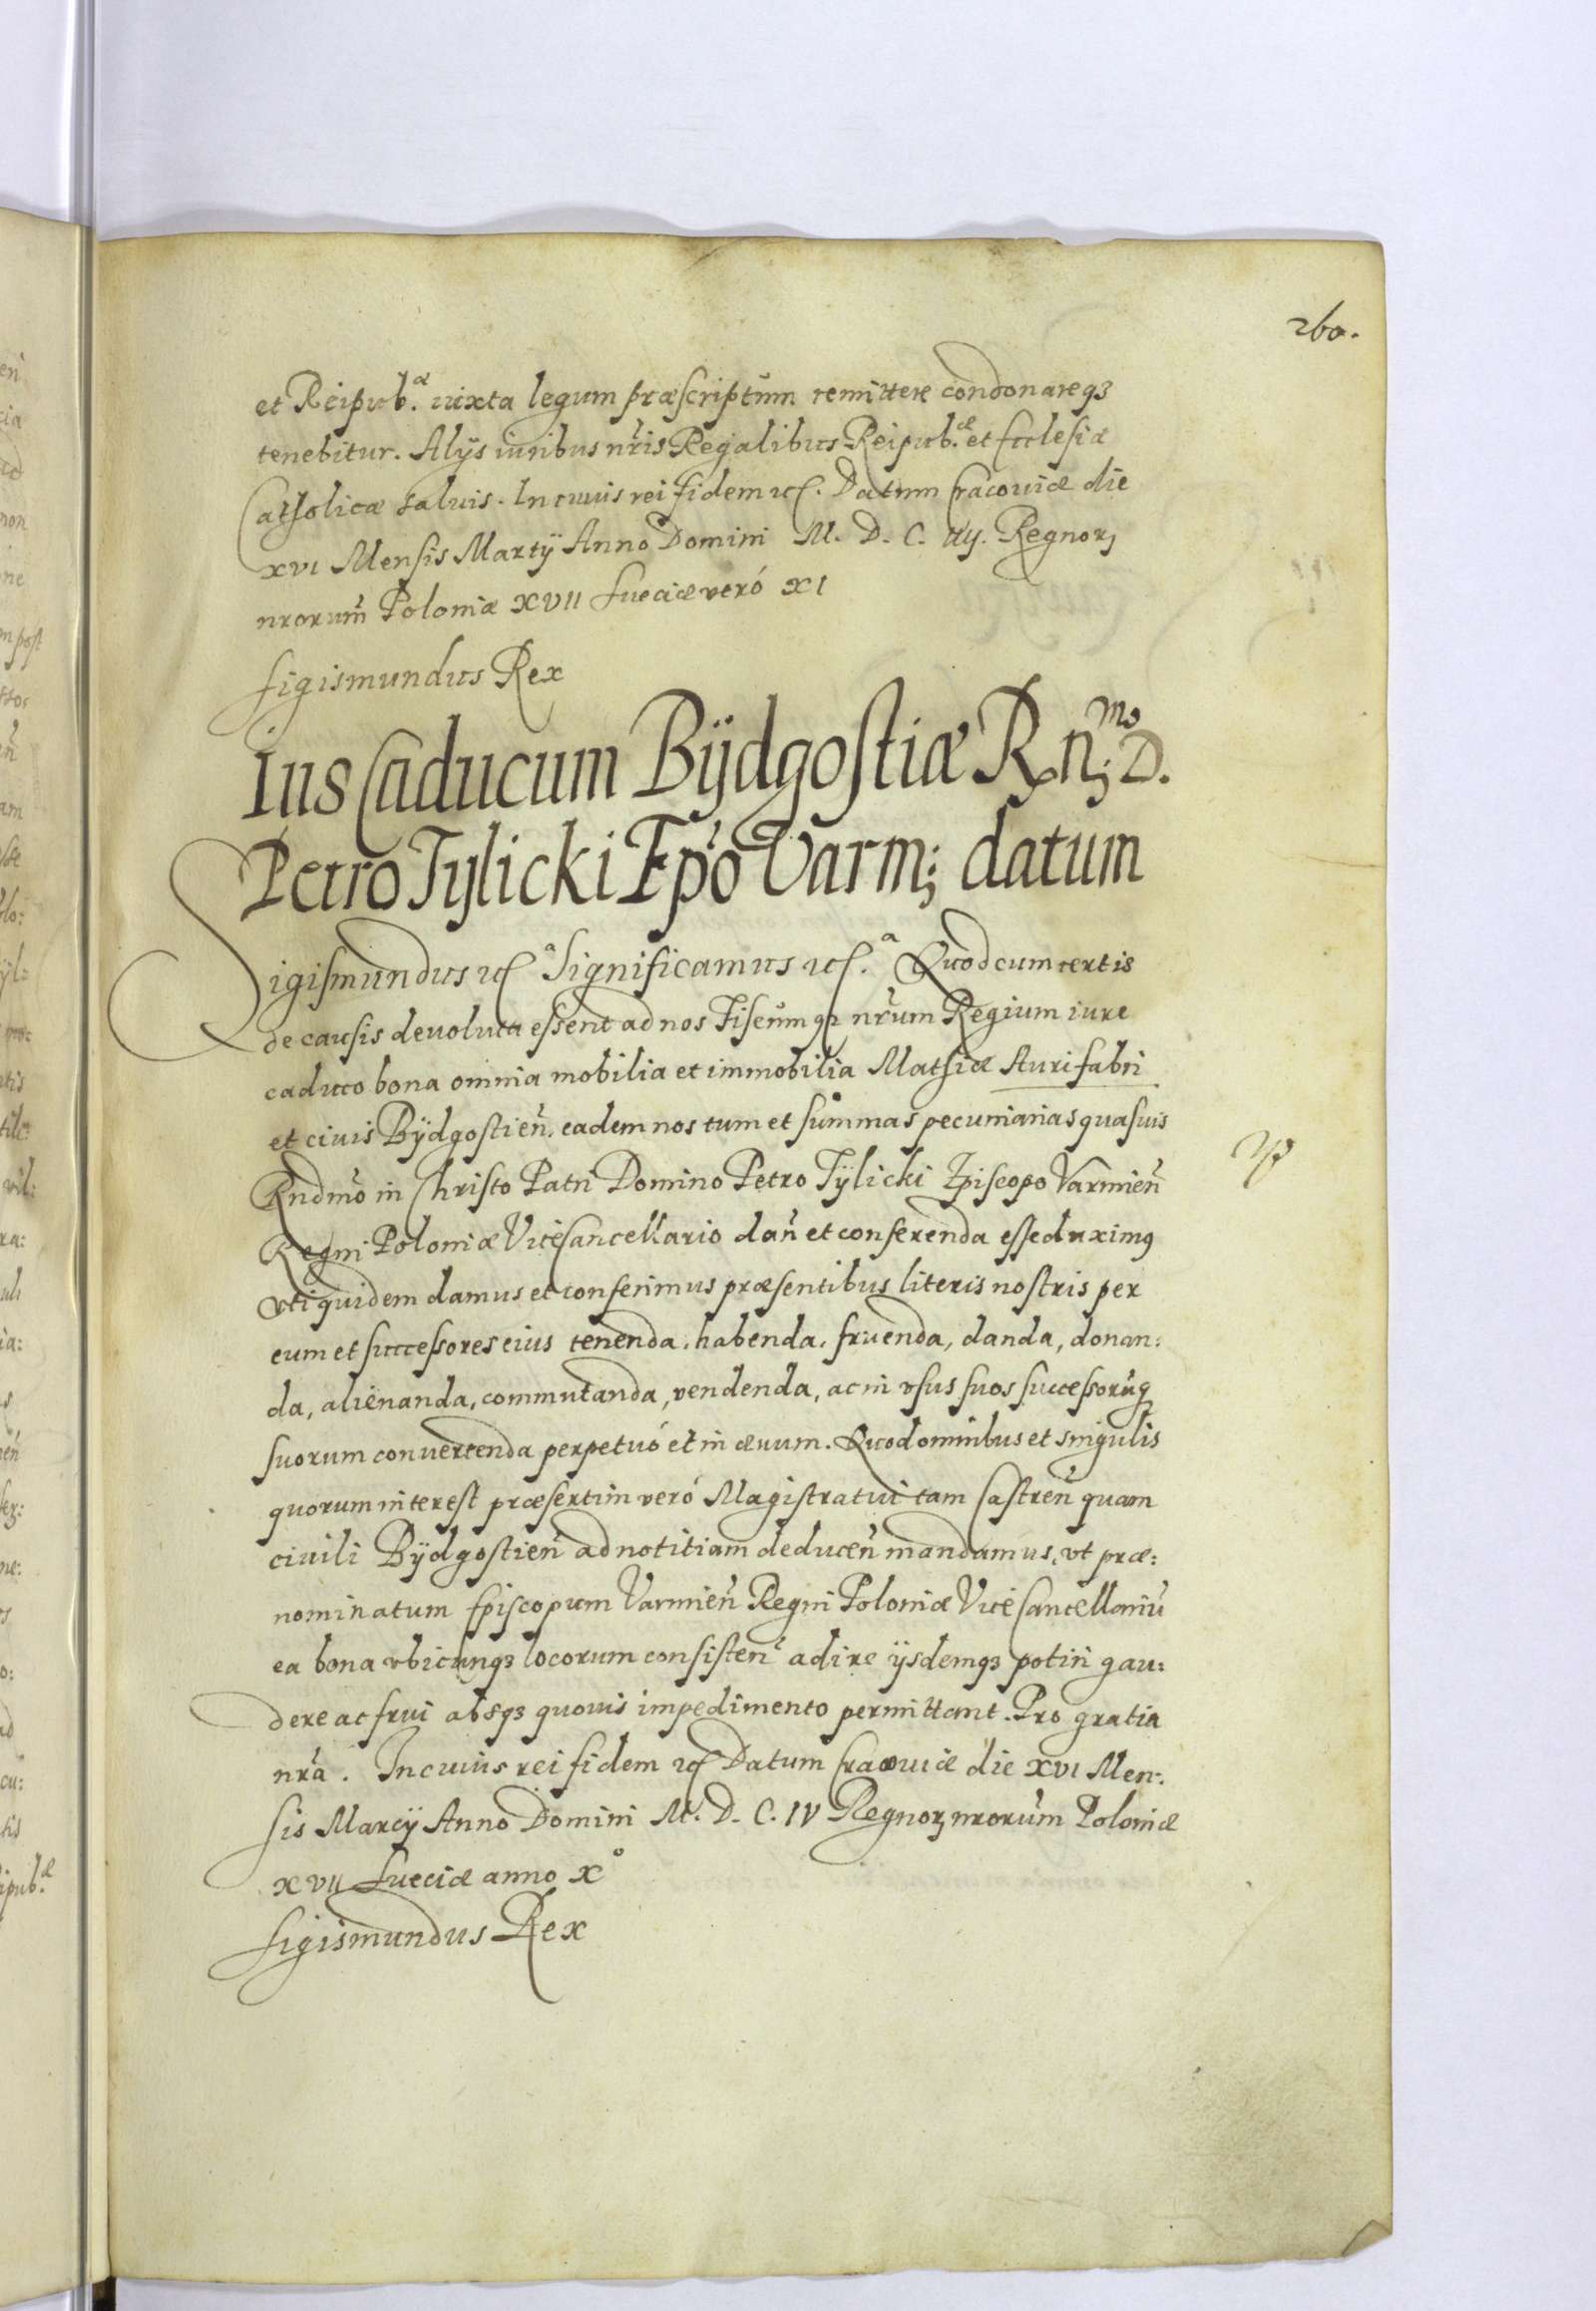 260.
et Reipub.æ iuxta legum præscriptum remittere condonareqꝫ
tenebitur. Alijs iuribus nr̃is Regalibus Reipub.æ et Ecclesiæ
Catholicæ saluis. In cuius rei fidem ꝛc̃. Datum Cracouiæ die
XVI Mensis Martij Anno Domini M. D. C. iiij. Regnorꝫ
nrorum̃ Poloniæ XVII Sueciæ veró XI
Sigismundus Rex
Ius Caducum Bÿdgostiæ R.n;mo D.
Petro Tÿlicki Ep̃o Varm; datum
Sigismundus ꝛc̃a Significamus ꝛc̃.a Quod cum certis
de causis deuoluta essent ad nos Fiscumqꝫ nr̃um Regium iure
caduco bona omnia mobilia et immobilia Mathiæ Aurifabri
et ciuis Bÿdgostien̄. eadem nos tum et summas pecuniarias quasuis
Rndmo in Christo Patri Domino Petro Tÿlicki Episcopo Varmien̄
Regni Poloniæ Vicecancellario dan̄ et conferenda esse duximꝰ
vti quidem damus et conferimus præsentibus literis nostris per
eum et successores eius tenenda, habenda, fruenda, danda, donan:
da, alienanda, commutanda, vendenda, ac in vsus suos successorūqꝫ
suorum conuertenda perpetuó et in æuum. Quod omnibus et singulis
quorum interest præsertim veró Magistratui tam Castren̄ quam
ciuili Bÿdgostien̄ ad notitiam deducen̄ mandamus, vt præ:
nominatum Episcopum Varmien̄ Regni Poloniæ Vicecancellariū
ea bona vbicunqꝫ locorum consisten̄ adire ijsdemqꝫ potiri gau:
dere ac frui absqꝫ quouis impedimento permittant. Pro gratia
nr̃a. In cuius rei fidem ꝛc̃ Datum Cracouiæ die XVI Men:
sis Marcij Anno Domini M. D. C. IV Regnorꝫ nrorum̃ Poloniæ
XVII Sueciæ anno Xº
Sigismundus Rex